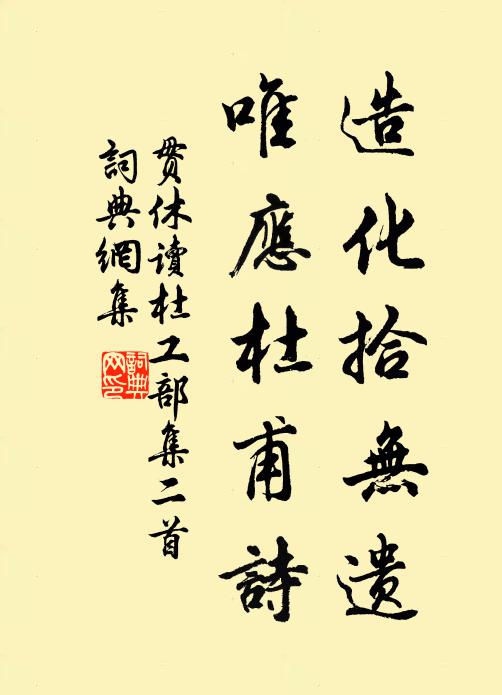 造化拾無遺
唯應杜甫詩
貫休讀杜工部集二首
詞典網集
詞典網印